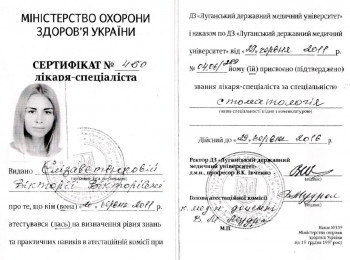 МІНІСТЕРСТВО ОХОРОНИ
ЗДОРОВ'Я УКРАЇНИ
СЕРТИФІКАТ № 450
лікаря-спеціаліста
Видано Єлізаветинковій
Вікторії Вікторівні
про те, що він (вона) червня 2011
атестувався (лась) на визначення рівня знань
та практичних навиків в атестаційній комісії при
ДЗ «Луганський державний медичний університет»
і наказом по ДЗ «Луганський державний медичний
університет» від 29 червня 2011
№ йому (їй) присвоєно (підтверджено)
звання лікаря-спеціаліста за спеціальністю
стоматологія
Дійсний до 29 червня 2016
Ректор ДЗ «Луганський державний
медичний університет»
д.м.н., професор В.К. Івченко
Голова атестаційної
комісії
М.П.
Наказ №359
Міністерства охорони
здоров'я України
від 19 грудня 1997 року